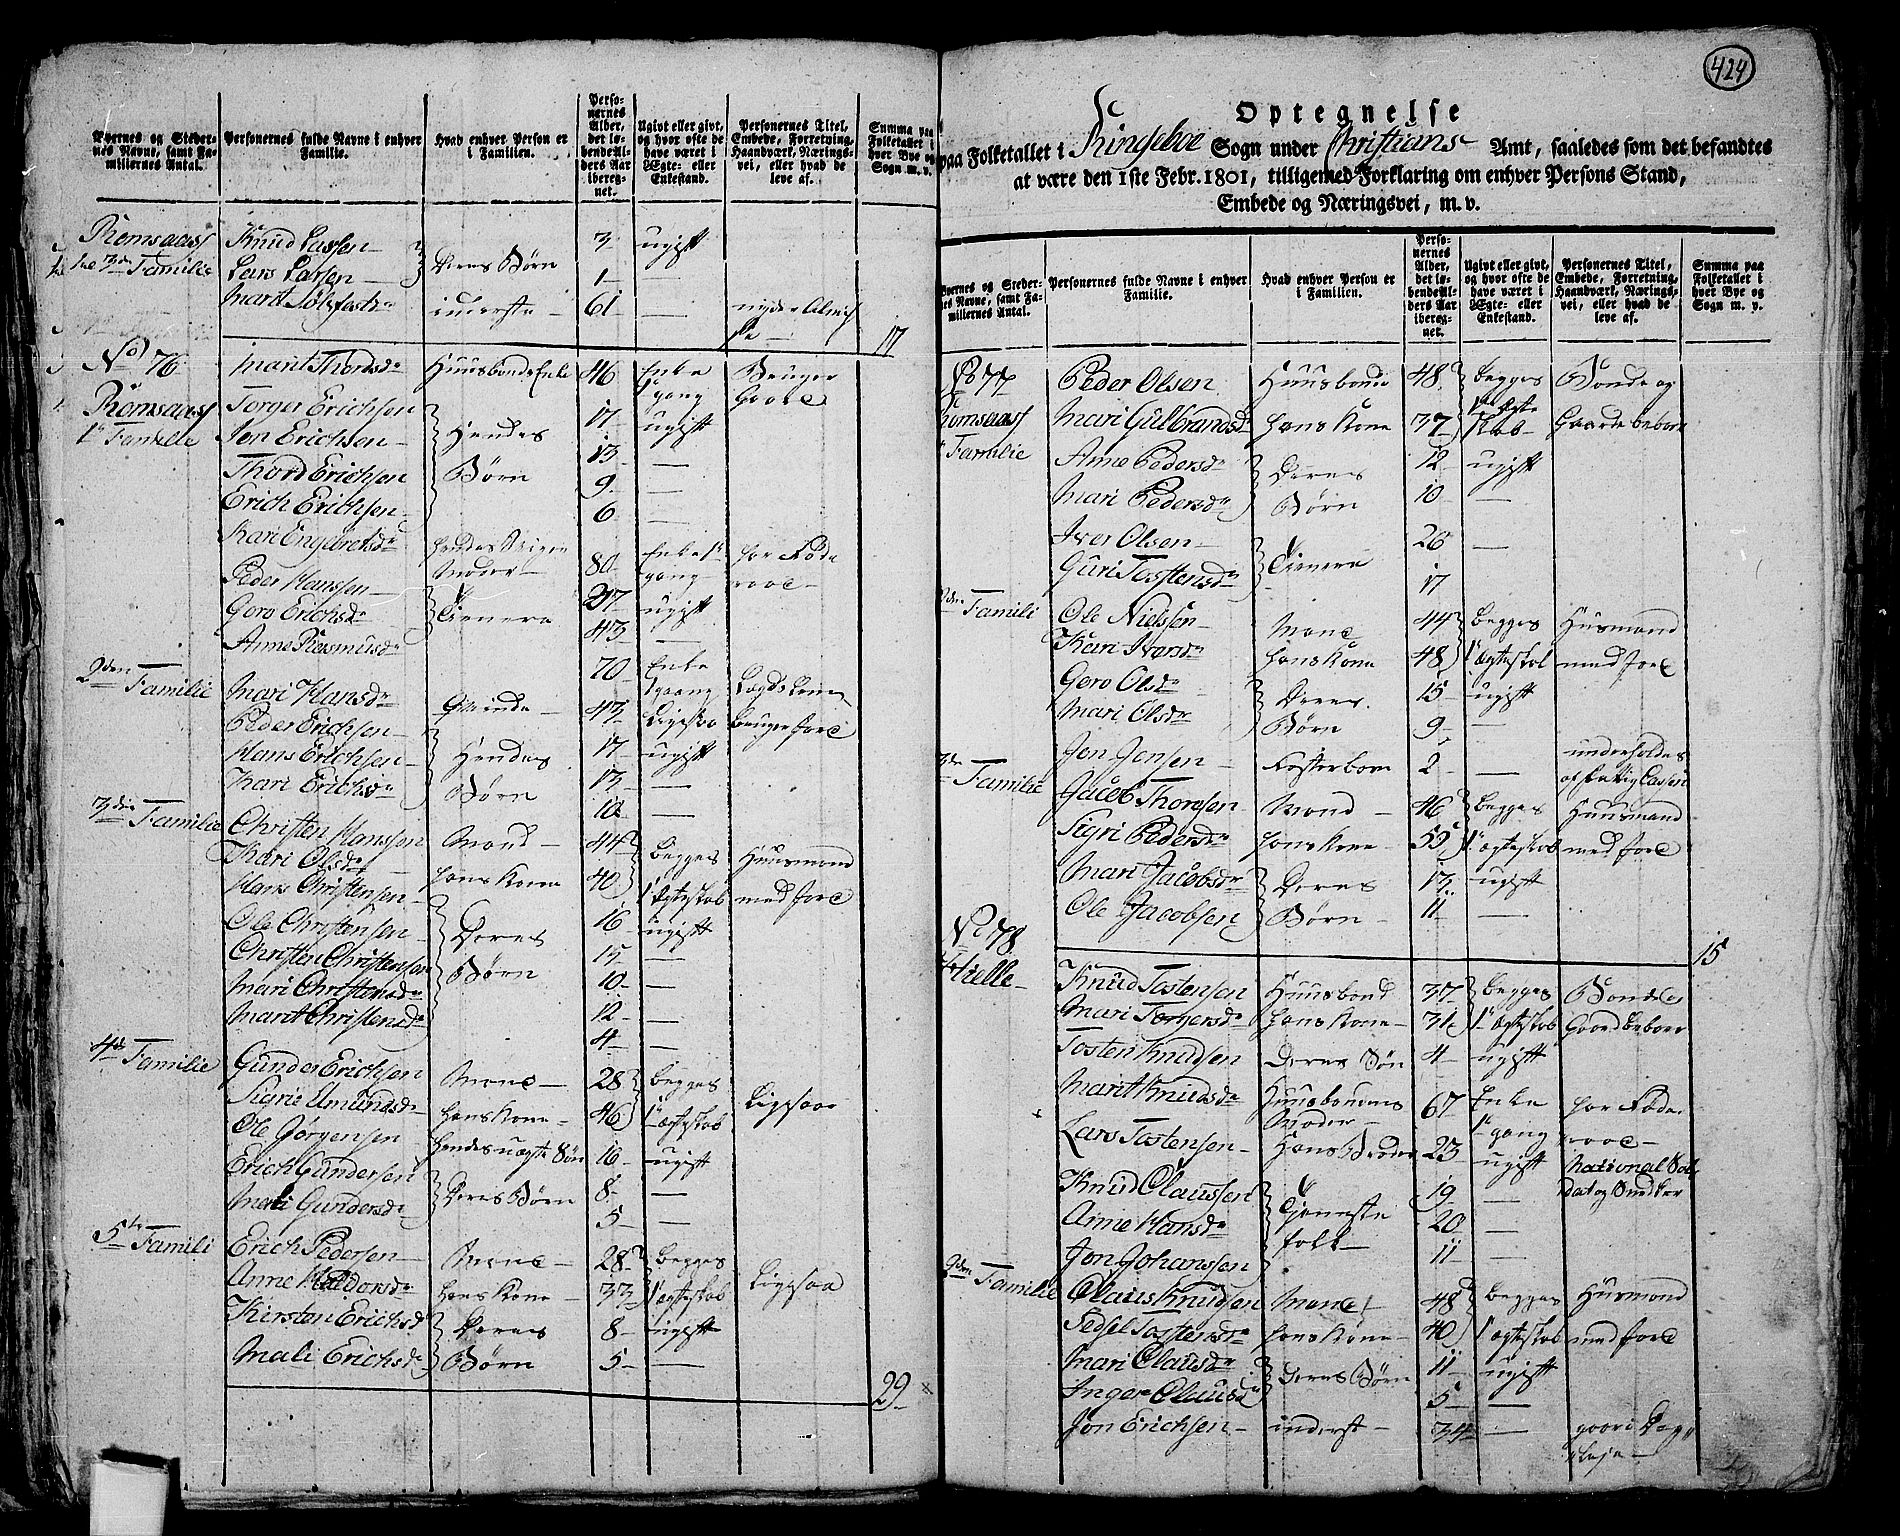 Byernes og Steder-
nes Navne, samt Fa-
milliernes Antal.
Personernes fulde Navne i enhver
Familie.
Hvad enhver Person er
i Familien.
Perso-
nernes
Alder,
det lø-
bende Al-
ders Aar
ibereg-
net.
Ugivt eller givt,
og hvor ofte de
have været i
Ægte- eller
Enkestand.
Personernes Titel,
Embede, Forretning,
Haandværk, Nærings-
vei, eller hvad de
leve af.
Summa paa
Folketallet i
hver Bye og
Sogn m. v.
Romsaass Knud Larsen 3 ugift
3de Familie Lars Larsen Deres Børn 1 —
Marit Sølfestdr inderste 61 — nyder Almis
se 17
No 76 Marit Thordsdr Huusbonds Enke 46 Enke 1 gang Bruger Gaard
Romsaass Torger Erichsen Hendes 17 ugift
1te Familie Jon Erichsen Børn 13 —
Thord Erichsen 9 —
Erich Erichsen 6 —
Kari Engebretsdr hendes Sviger Moder 80 Enke 1 gang har Føde raad
Peder Hanssen 27 ugift
Goro Erichsdr Tienere 43 —
Anne Rasmusdr
2den Familie Mari Hansdr Qvinde 70 Enke 1 gang Lægdslem
Peder Erichsen 43 Ligesaa bruger Jord
Hans Erichsen Hendes 17 ugift
Kari Erichsdr Børn 13 —
3die Familie Christen Hanssen Mand 44 begges Huusmand
Kari Olsdr hans Kone 40 1te Ægteskab med Jord
Hans Christensen 16 ugift
Ole Christensen Deres 15 —
Christen Christensen Børn 10 —
Mari Christensdr 12 —
Marit Christensdr 4 —
4de Familie Gunder Erichsen Mand 28 begges Ligesaa
Sigrie Amundsdr hans Kone 46 1te ægteskab
Ole Jørgensen hendes uægte Søn 16 ugift
Erich Gundersen Deres Børn 8 —
Mali Gundersdr 5 —
5te Famili Erich Pedersen Mand 28 begges Ligesaa
Anne Haldorsdr hans Kone 33 1te ægteskab
Kiersten Erichsd Deres 8 ugift
Mali Erichsdr Børn 5 —
29
424
Optegnelse
paa Folketallet i Ringeboe Sogn under Christians Amt, saaledes som det befandtes
at være den 1ste Febr. 1801, tilligemed Forklaring om enhver Persons Stand,
Embede og Næringsvei, m. v.
Byernes og Steder-
nes Navne, samt Fa-
milliernes Antal.
Personernes fulde Navne i enhver
Familie.
Hvad enhver Person er
i Familien.
Perso-
nernes
Alder,
det lø-
bende Al-
ders Aar
ibereg-
net.
Ugivt eller givt,
og hvor ofte de
have været i
Ægte- eller
Enkestand.
Personernes Titel,
Embede, Forretning,
Haandværk, Nærings-
vei, eller hvad de
leve af.
Summa paa
Folketallet i
hver Bye og
Sogn m. v.
No 77 Peder Olsen Huusbonde 48 begges Bonde og
Romsaass Mari Gulbrandsdr hans Kone 37 1te Ægteskab Gaardbeboer
Familie Anne Pedersdr Deres 12 ugift
Mari Pedersdr Børn 10 —
Iver Olsen Tienere 20 —
Guri Tostensdr 17
2den Famili Ole Nielsen Mand 44 begges Husmand
Kari Iversdr hans Kone 48 1te ægteskab med Jord
Goro Olsdr Deres 15 ugift
Mari Olsdr Børn 9 —
Jon Jonsen Fosterbarn 2 — underholdes
af Fattig Cassen
3die Familie Jacob Thordsen Mand 46 begges Huusmand
Sigri Pedersdr hans Kone 55 1te ægteskab med Jord
Mari Jacobsdr Deres 13 ugift
Ole Jacobsen Børn 11 —
15
No 78
Knud Tostensen Huusbond 37 begges Bonde og
Mari Torgersdr hans Kone 31 1te ægteskab Gaardbeboer
Tosten Knudsen Deres Søn 4 ugift
Marit Knudsdr Huusbondens Moder 67 Enke 1te gang har Føde raad
Lars Tostensen Hans Broder 23 ugift National Sol
dat og Snedker
Knud Claussen Tieneste 19 —
Anne Hansdr folk 20 —
Jon Johanssen 11 —
2den Familie Claus Knudsen Mand 48 begges Husmand
Sedsel Tostensdr hans Kone 40 1te ægteskab med Jord
Mari Clausdr Deres Børn 11 ugift
Inger Clausd 5 —
Jon Erichsen inderst 34 — gaar i Dag
leje